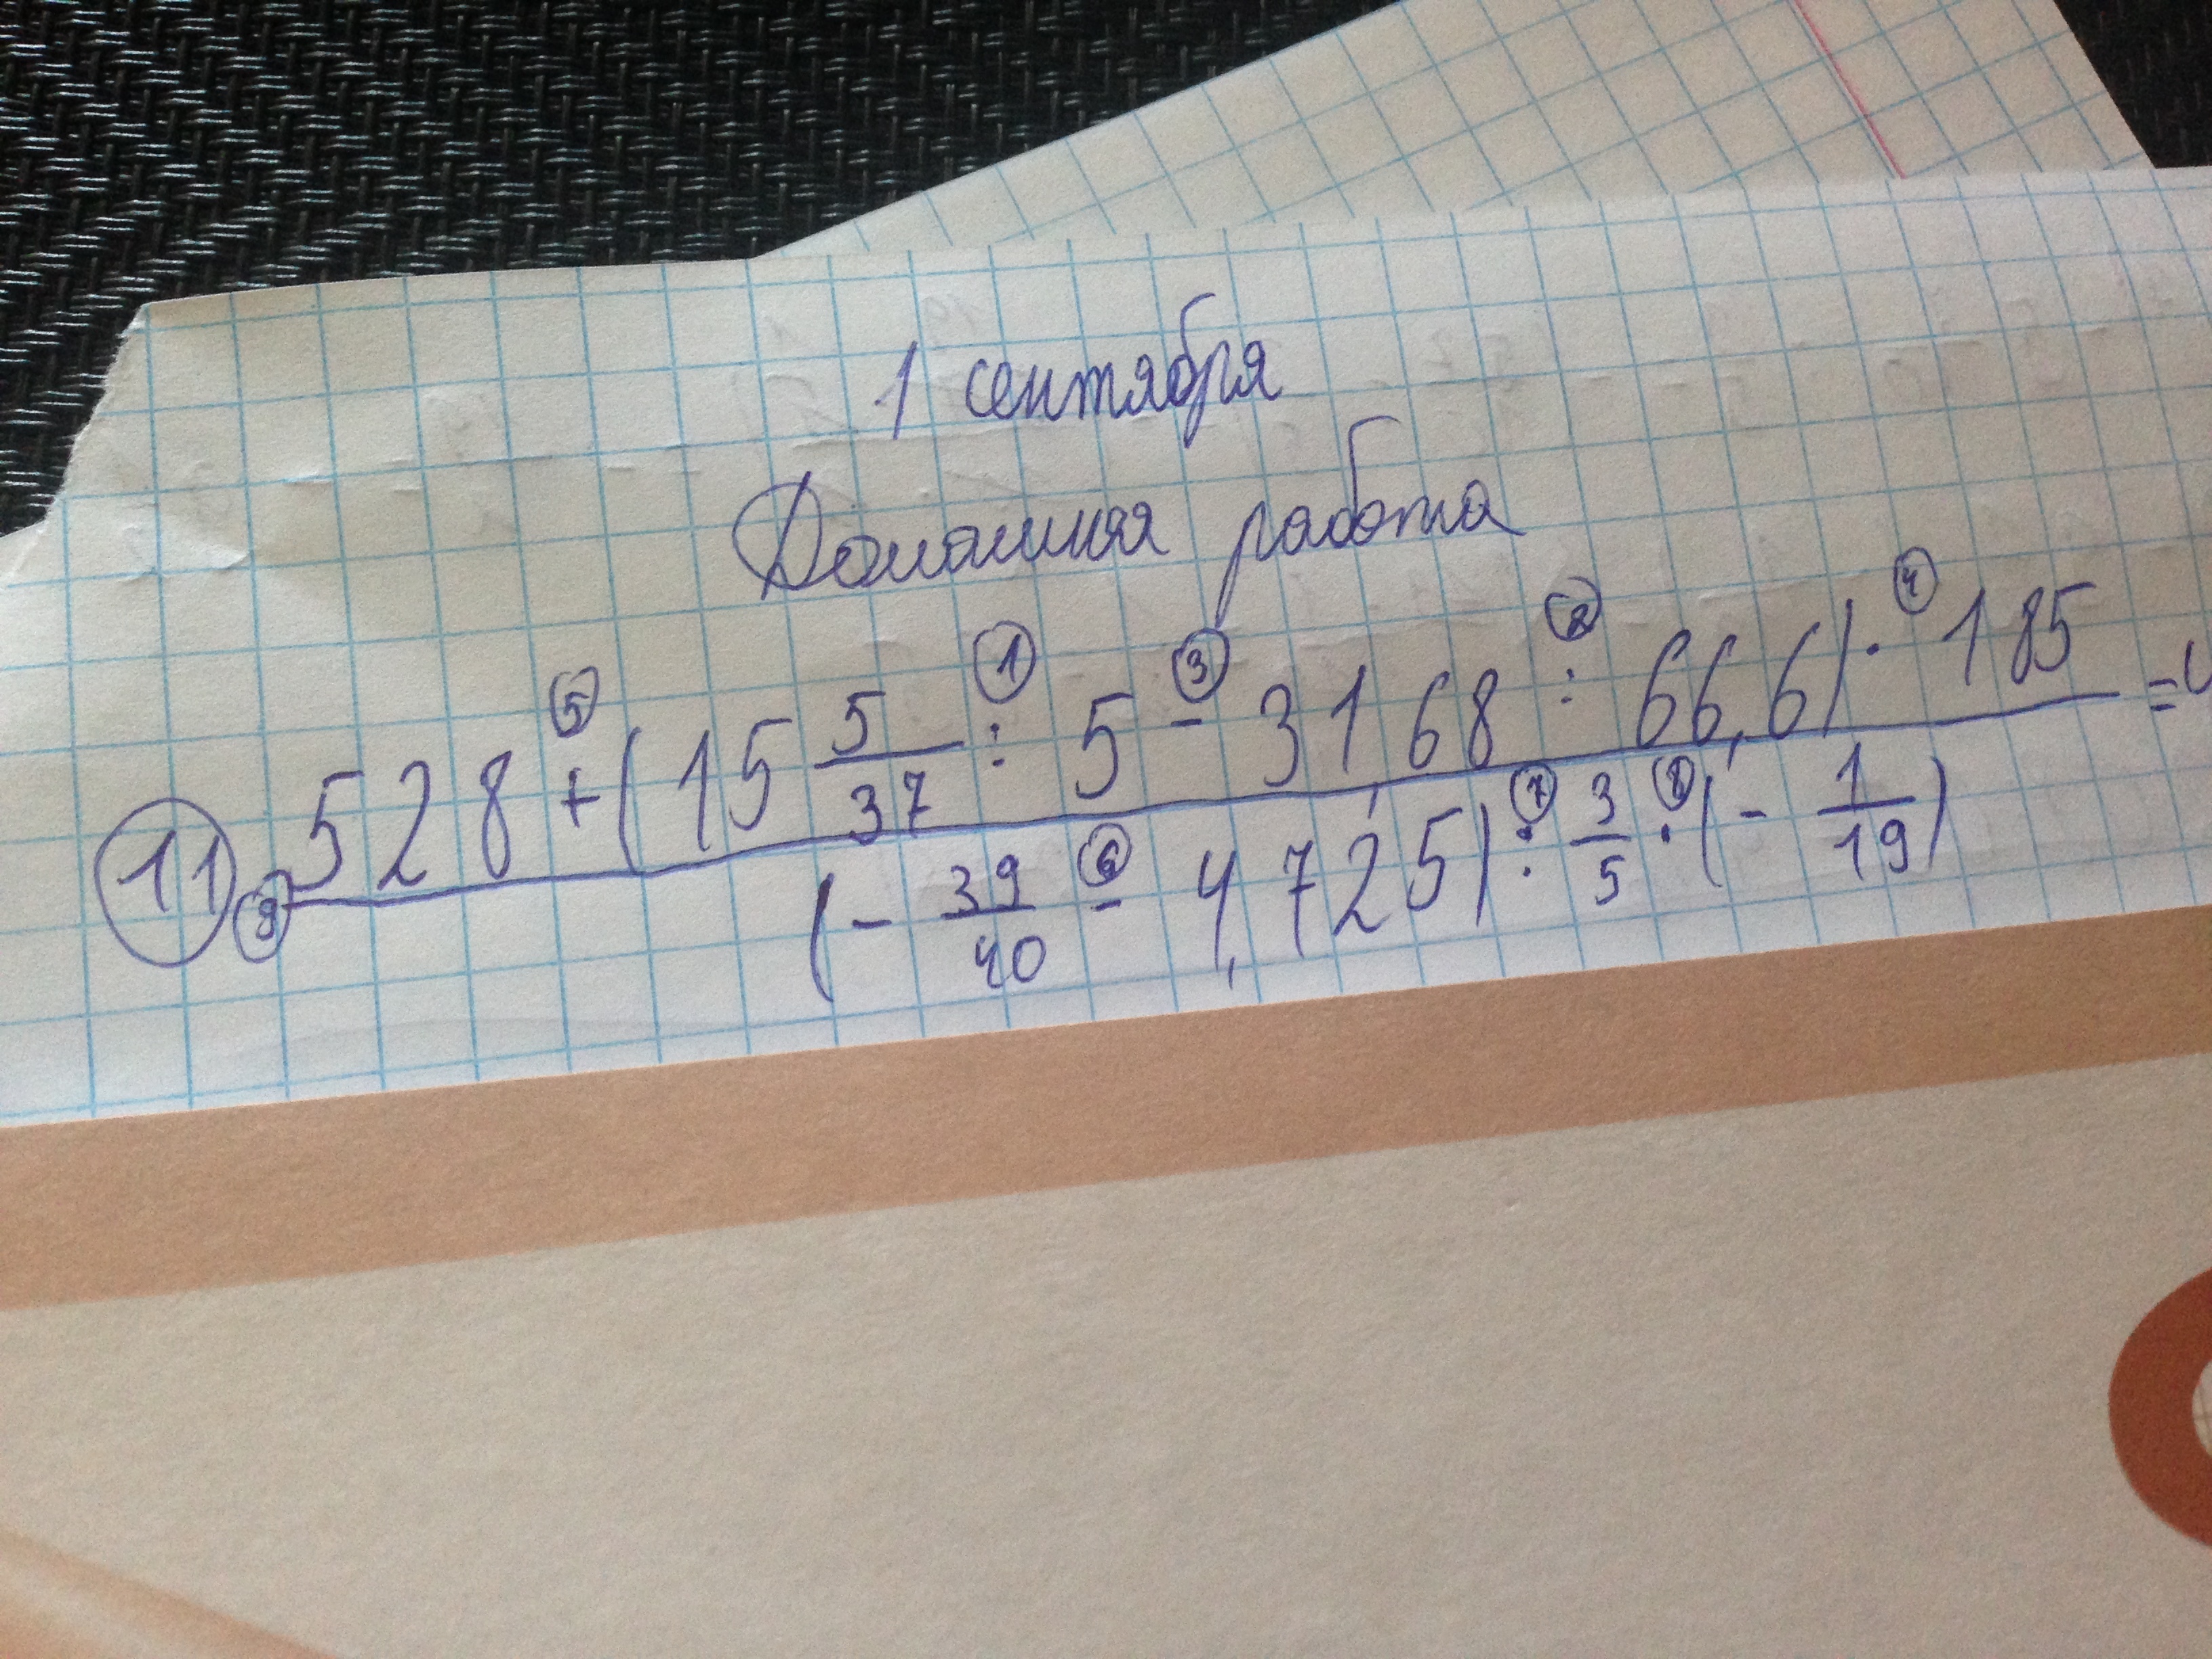 1 сентября
Домашняя работа
11. 528 + (15 5/37 : 5 - 3168 : 66,6) · 185 =
(- 39/40 - 4,725) : 3/5 · (- 1/19)